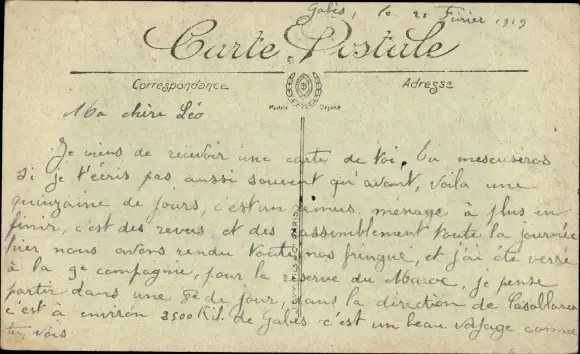 Gabès, le 21 Février 1919
Carte Postale
Correspondance
Adresse
Modèle Déposé
Ma chère Léo
Je viens de recevoir une carte de toi. Tu mescuseras
si je t'écris pas aussi souvent qu'avant, voila une
quinzaine de jours, c'est un remus menage à plus en
finir, c'est des revus et des rassemblement toute la journée
hier nous avons rendu toutes nos fringue, et j'ai été versé
à la 9e compagnie, pour la réserve du Maroc, je pense
partir dans une de jour, dans la direction de Casablanca
c'est à environ 2500 Kil. de Gabès c'est un beau voyage comme
tu vois